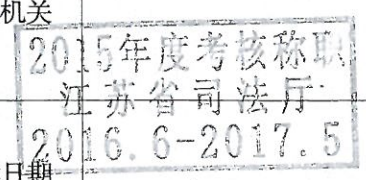 机关
2015年度考核称职
江苏省司法厅
2016.6-2017.5
日期